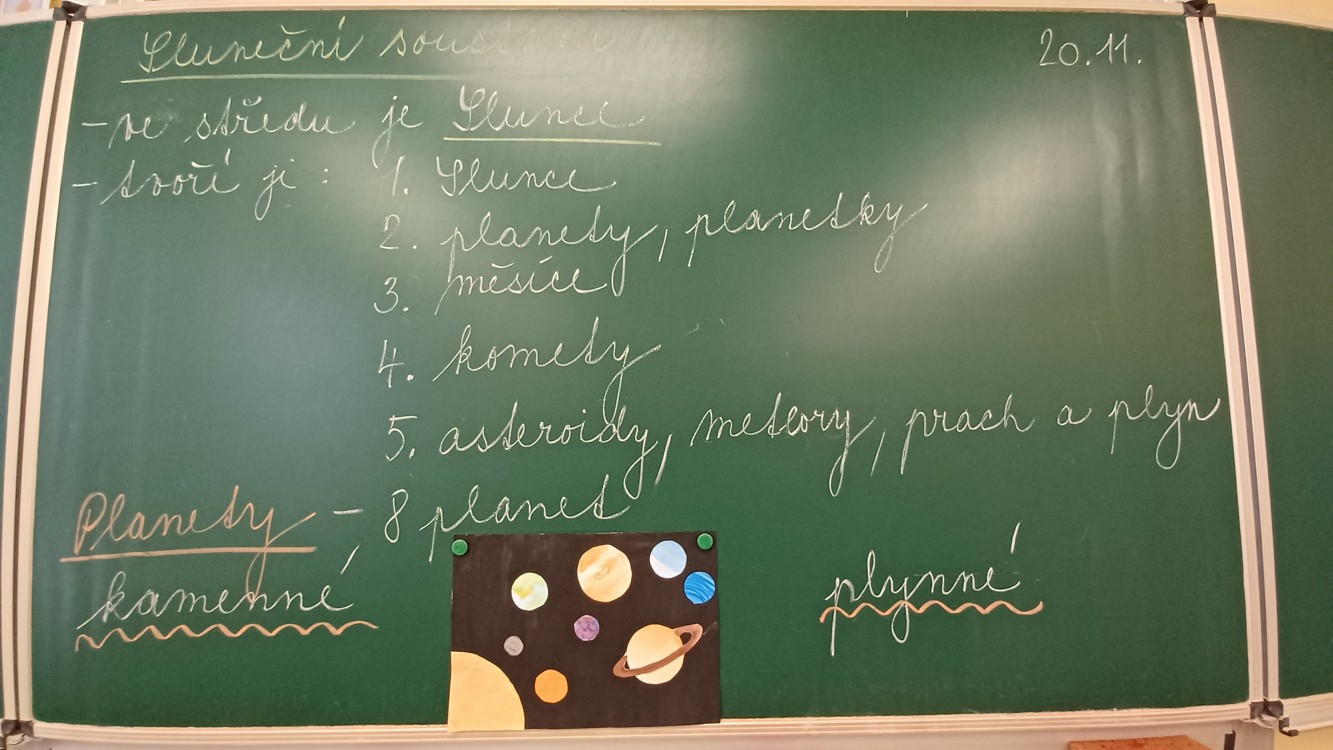 Sluneční soustava 20.11.
- ve středu je Slunce
- tvoří ji : 1. Slunce
2. planety, planetky
3. měsíce
4. komety
5. asteroidy, meteory, prach a plyn
Planety - 8 planet
kamenné plynné